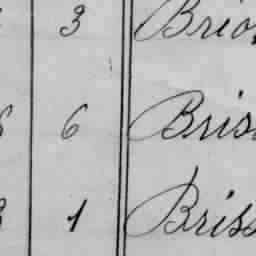 3 Brio
6 Bris
1 Briss